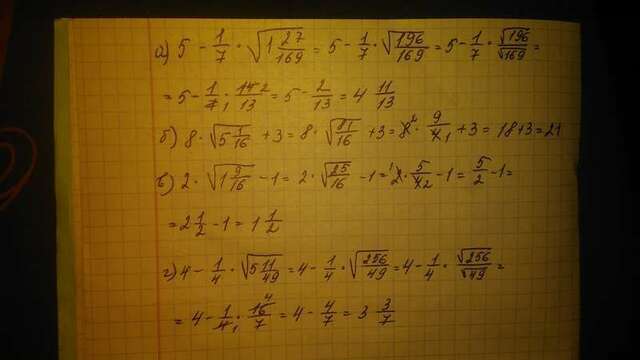 а) 5 - 1/7 · √(1 27/169) = 5 - 1/7 · √(196/169) = 5 - 1/7 · √196/√169 =
= 5 - 1/7 · 14/13 = 5 - 2/13 = 4 11/13
б) 8 · √(5 1/16) + 3 = 8 · √(81/16) + 3 = 8 · 9/4 + 3 = 18 + 3 = 21
в) 2 · √(1 9/16) - 1 = 2 · √(25/16) - 1 = 2 · 5/4 - 1 = 5/2 - 1 =
= 2 1/2 - 1 = 1 1/2
г) 4 - 1/4 · √(5 11/49) = 4 - 1/4 · √(256/49) = 4 - 1/4 · √256/√49 =
= 4 - 1/4 · 16/7 = 4 - 4/7 = 3 3/7